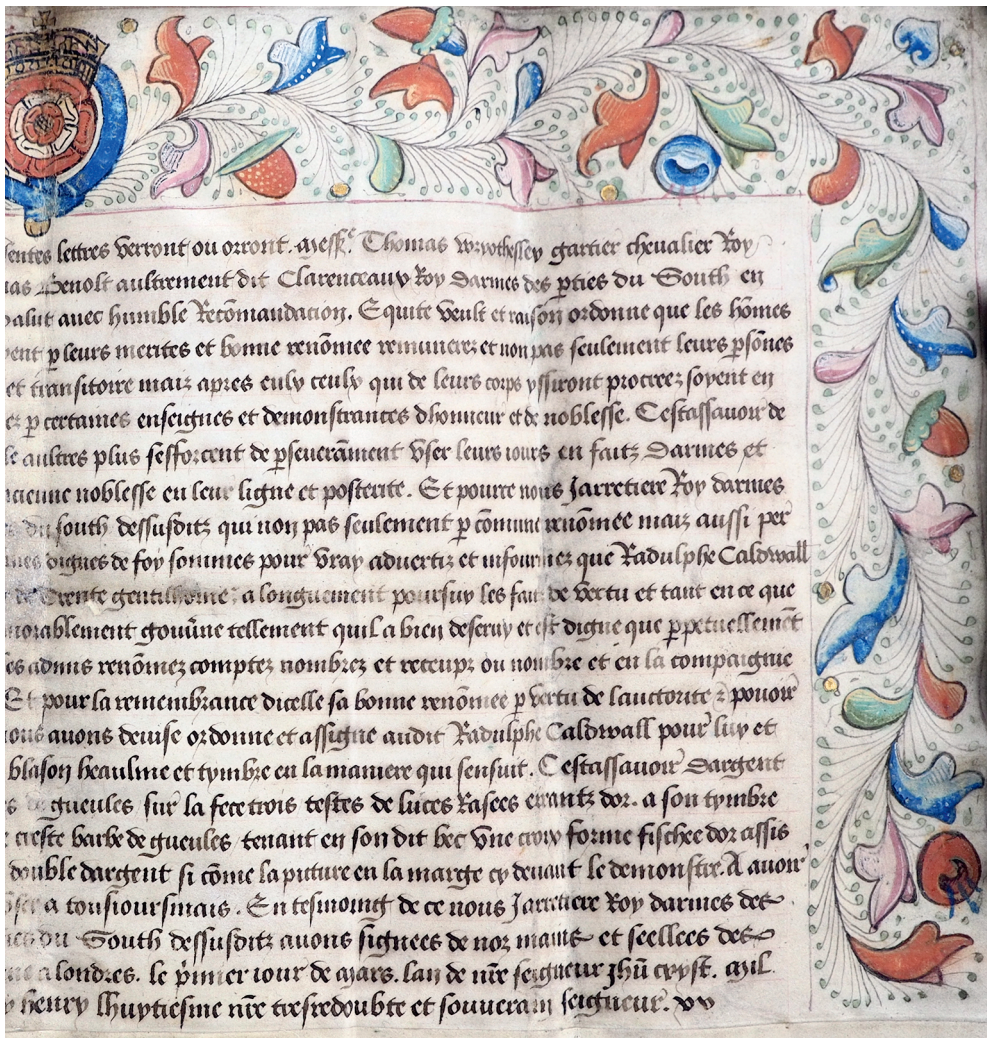 lettres verront ou orront. Messr Thomas Wryothessley gartier chevalier Roy
Benolt aultrement dit Clarenceaux Roy darmes des pties du South en
salut avec humble Recōmandacion. Equite veult et raison ordonne que les hōmes
p leurs merites et bonne renōmee remunerez et non pas seulement leurs psōnes
et transitoire mais apres eulx ceulx qui de leurs corps yssiront procreez soyent en
p certaines enseignes et demonstrances dhonneur et de noblesse. Cestassavoir de
aultres plus sefforcent de pseverāment user leurs iours en faitz darmes et
noblesse en leur ligne et posterite. Et pource nous Jarretiere Roy darmes
du south dessusditz qui non pas seulement p cōmune renōmee mais aussi per
dignes de foy sommes pour vray advertiz et infourmez que Radulphe Caldwall
de Trente gentilhome a longuement poursuy les faitz de vertu et tant en ce que
gouūne tellement quil a bien deseruy et est digne que ppetuellemēt
admis renōmez comptez nombrez et receupz ou nombre et en la compaignie
Et pour la remembrance dicelle sa bonne renōmee p vertu de lauctorite & pouoir
avons devise ordonne et assigne audit Radulphe Caldwall pour luy et
blason heaulme et tymbre en la maniere qui sensuit. Cestassavoir Dargent
gueules sur la fece trois testes de luces Rasees errantz dor. a son tymbre
creste barbe de gueules tenant en son dit bec une croix forme fischee dor assis
double dargent si cōme la picture en la marge cy devant le demonstre. A avoir
a tousioursmais. En tesmoing de ce nous Jarretiere Roy darmes des
du South dessusditz avons signees de noz mains et seellees des
a londres. le p̄mier iour de Mars. lan de nr̄e seigneur Jhū cryst. Mil
henry lhuytiesme nr̄e tresredoubte et souverain seigneur. xv